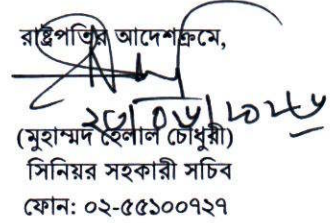 রাষ্ট্রপতির আদেশক্রমে,
(মুহাম্মদ হেলাল চৌধুরী)
সিনিয়র সহকারী সচিব
ফোন: ০২-৫৫১০০৭২৭